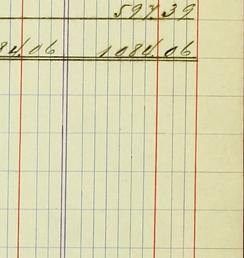 597.39
84.06 1084.06